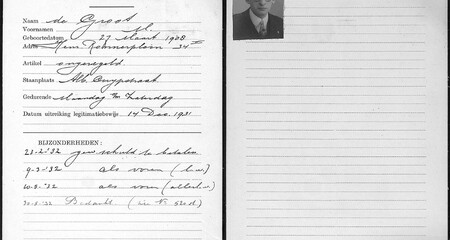 Naam de Groot
Voornamen M.
Geboortedatum 27 Maart 1908
Adres Hans Romerplein 34
Artikel ongeregeld
Staanplaats Alb. Cuypstraat
Gedurende Maandag t/m Zaterdag
Datum uitreiking legitimatiebewijs 14 Dec. 1931
BIJZONDERHEDEN:
23-2-'32 gew. schuld te betalen
9-3-'32 als voren (b.w.)
10-8-'32 als voren
30-8-'32 Bedacht (zie No 520.d.)